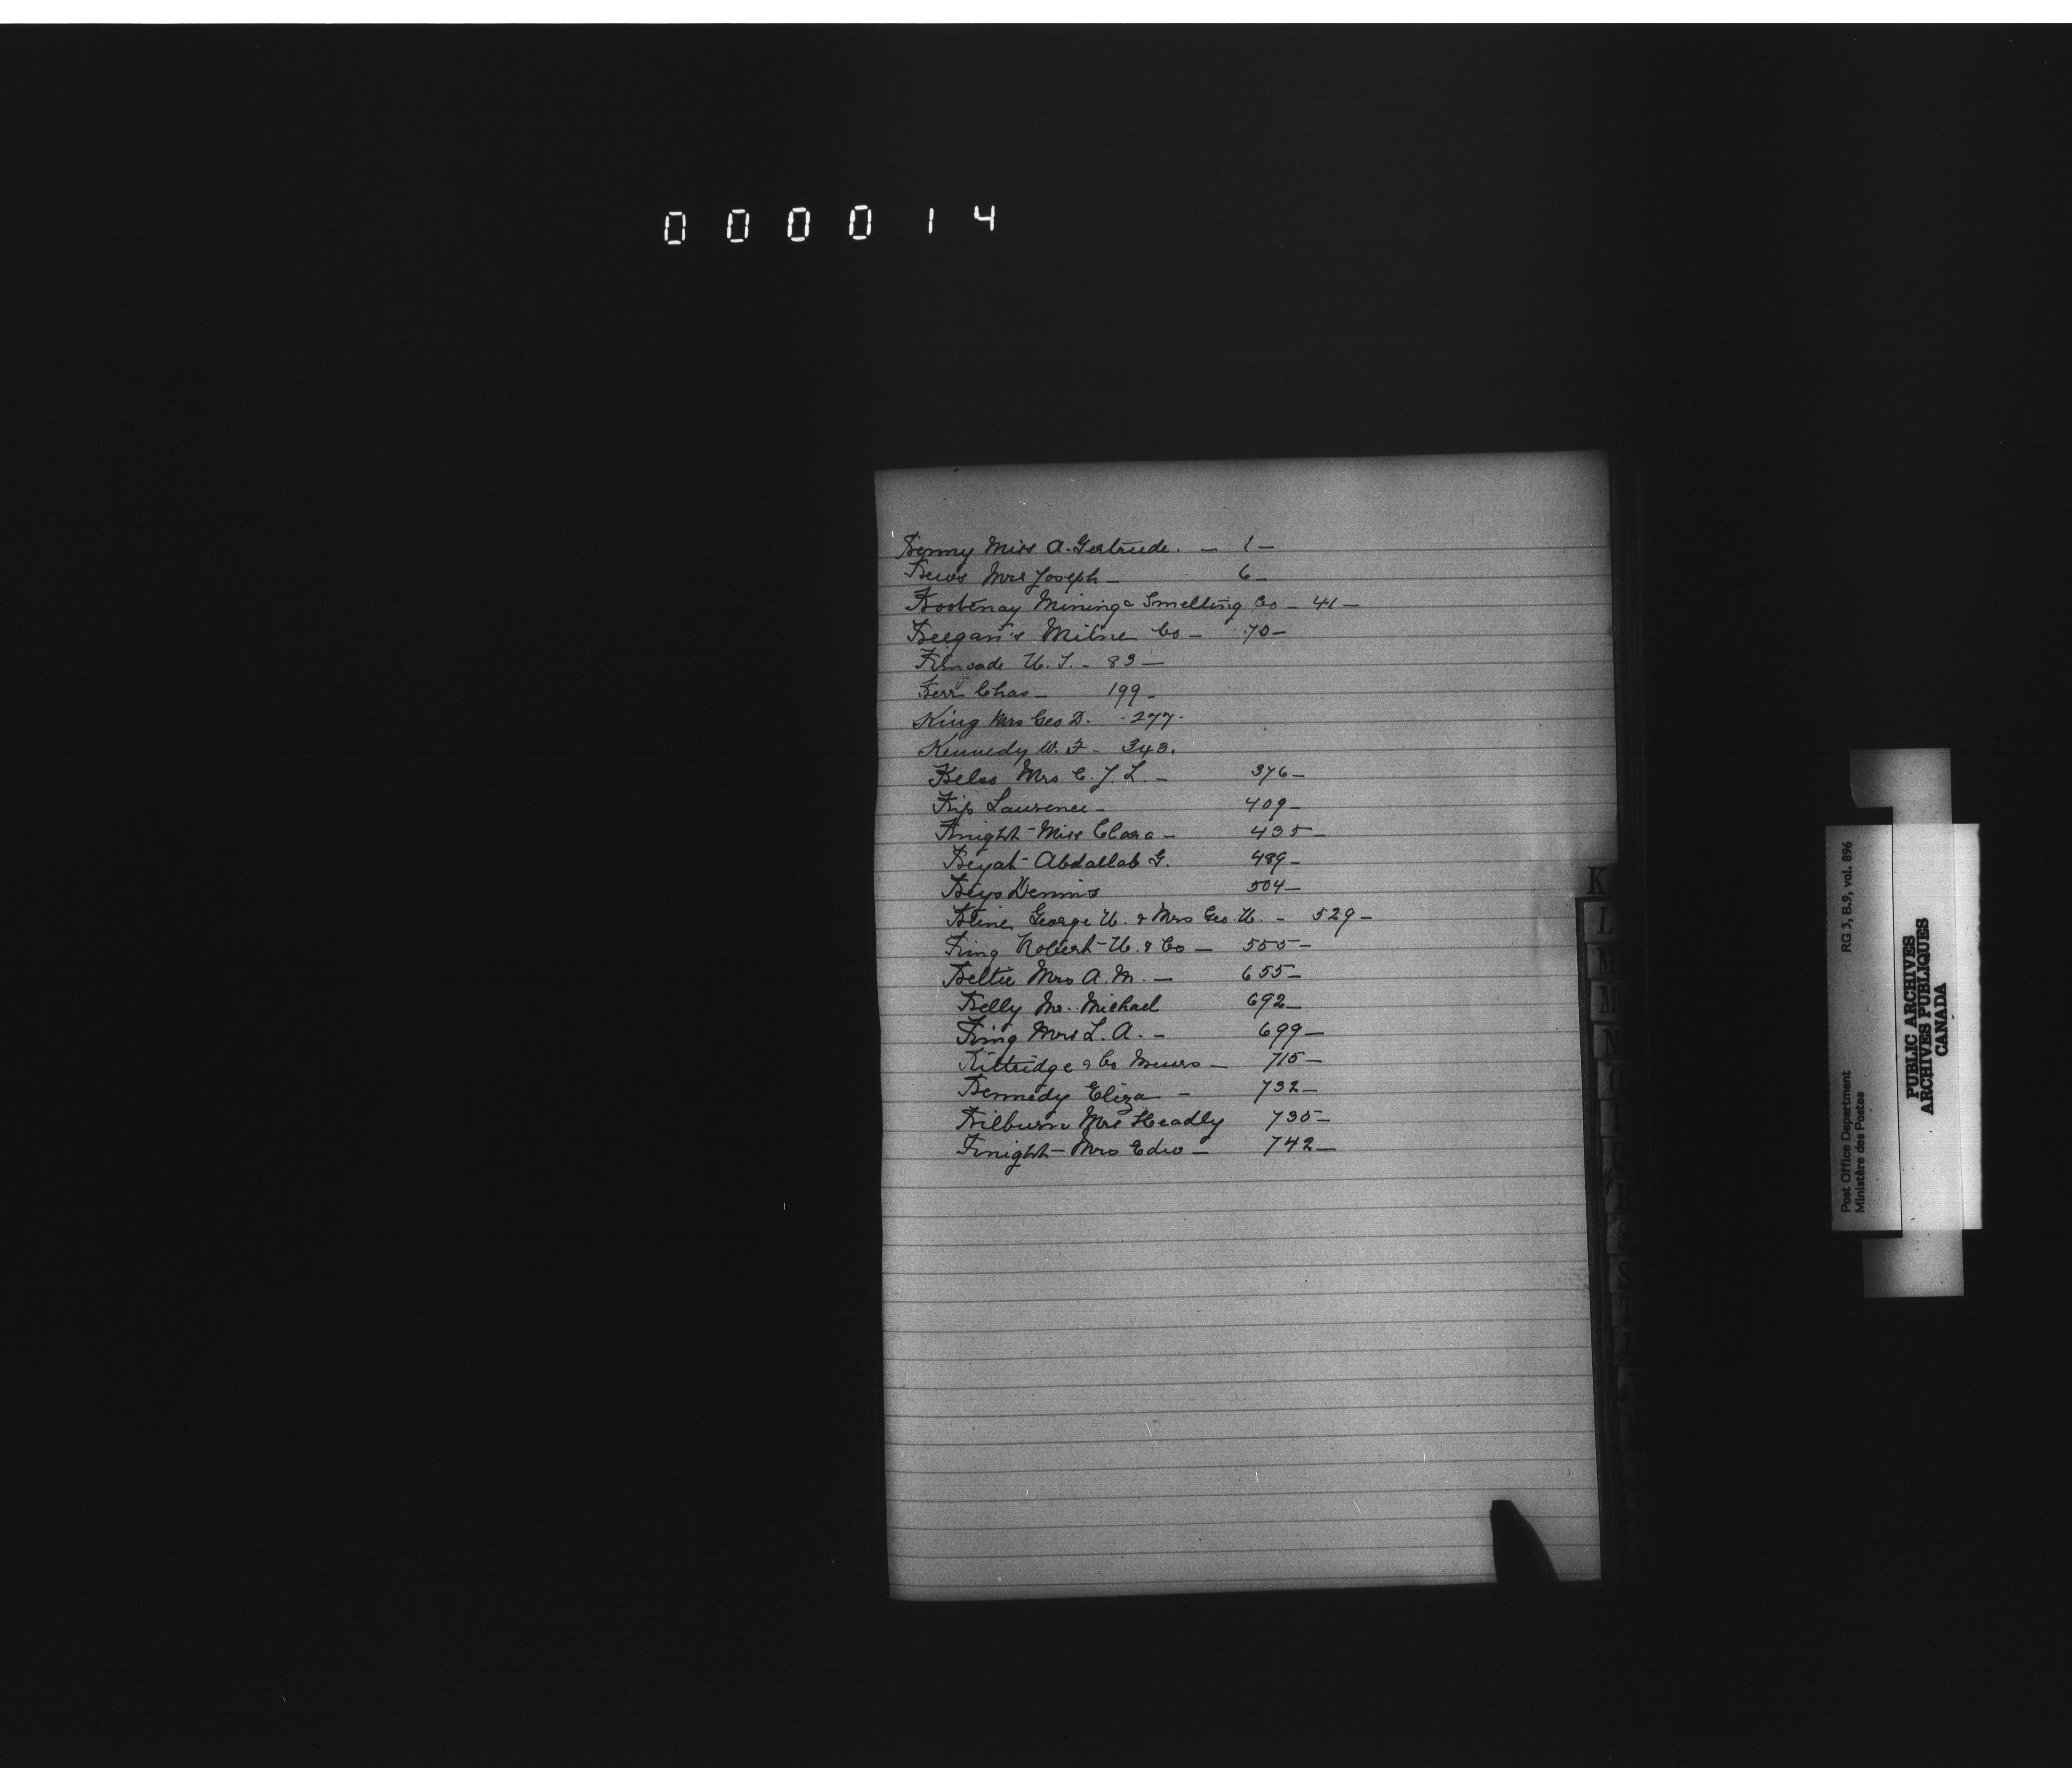 000014
Kenny Miss A. Gertrude. — 1 —
Kews Mrs Joseph — 6 —
Kootenay Mining & Smelting Co — 41 —
Keegan's Milne Co — 70 —
Kincade U. T. — 83 —
Kerr Chas — 199 —
King Mrs Geo D. - 277 -
Kennedy W. F — 343.
Kelso Mrs C. J. L. — 376 —
Kip Laurence — 409 —
Knight Miss Clara — 435 —
Keyat Abdallab G. 489 —
Keys Dennis 504 —
Kline George U. & Mrs Geo. U. — 529 —
King Robert U. & Co — 555 —
Keltie Mrs A. M. — 655 —
Kelly Mr. Michael 692 —
King Mrs L. A. — 699 —
Kittridge & Co Messrs — 715 —
Kennedy Eliza — 732 —
Kilburn Mrs Headly 735 —
Knight Mrs Edw — 742 —
K
L
M
M
N
O
Post Office Department RG 3, B.9, vol. 896
Ministère des Postes
PUBLIC ARCHIVES
ARCHIVES PUBLIQUES
CANADA